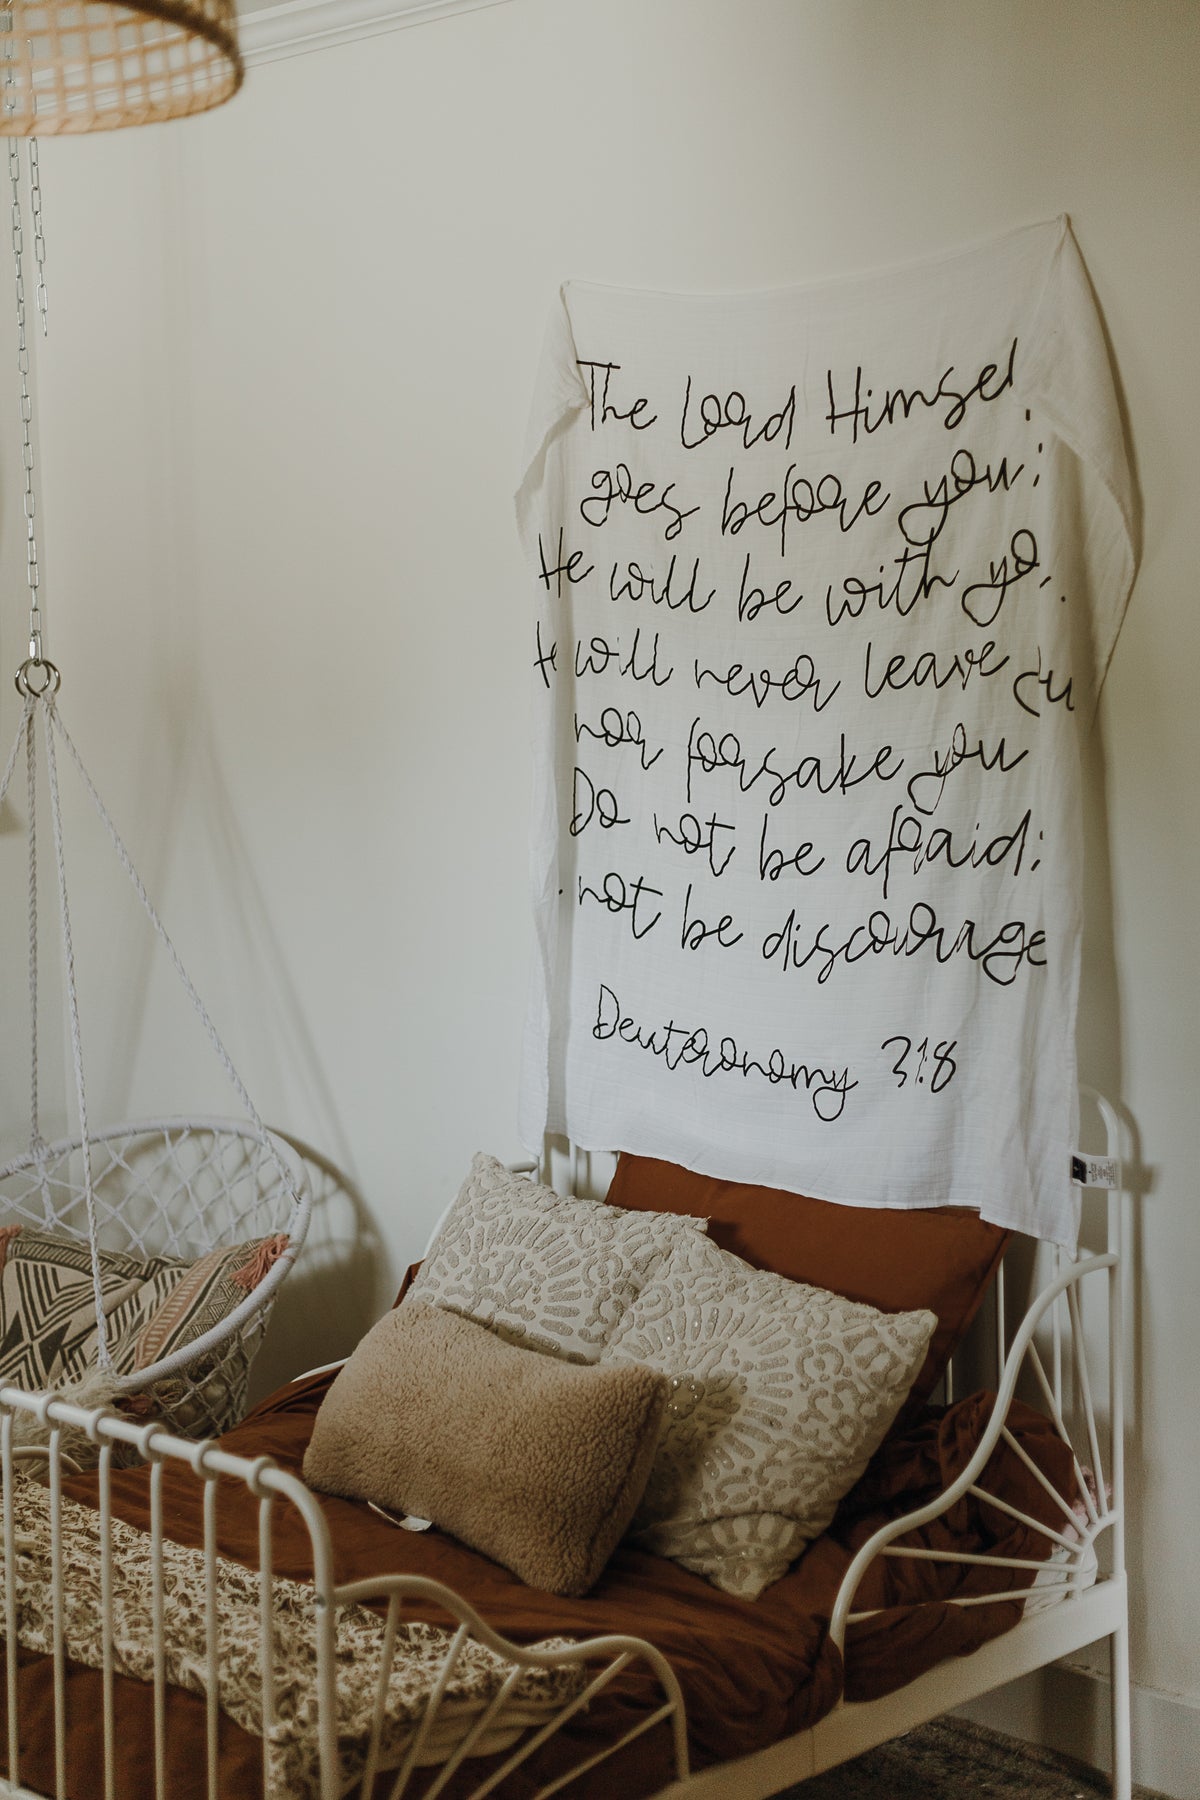 The Lord Himsel
goes before you;
He will be with yo
will never leave
nor forsake you
Do not be afraid;
not be discourage
Deuteronomy 31:8